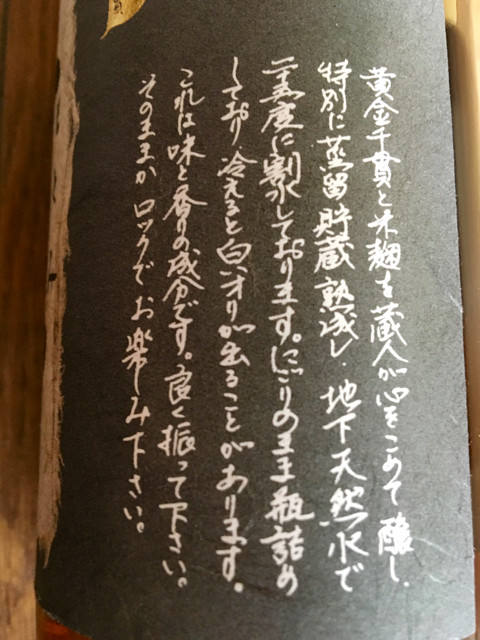 黄金千貫と米麹を蔵人が心をこめて醸し、
特別に蒸留、貯蔵、熟成し、地下天然水で
二十五度に割水しております。にごりのまま瓶詰め
しており、冷えると白いオリが出ることがあります。
これは味と香りの成分です。良く振って下さい。
そのままかロックでお楽しみ下さい。